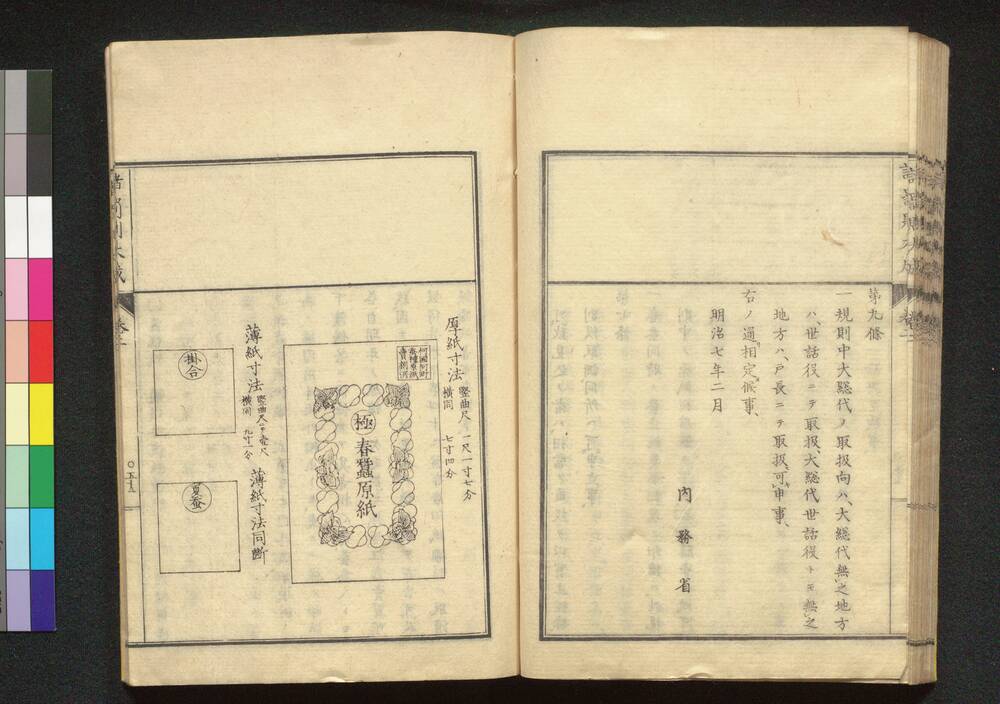 第九條
一規則中大總代ノ取扱向ハ、大總代無之地方
ハ世話役ニテ取扱、大總代世話役トモ無之
地方ハ、戸長ニテ取扱可申事、
右ノ通相定候事、
明治七年二月
內務省
厚紙寸法
竪曲尺一尺一寸七分
橫同七寸四分
極
春蠶原紙
薄紙寸法
竪曲尺ニテ壹尺
橫同九寸一分
掛合
薄紙寸法同斷
夏蚕
卷十一
〇五十五